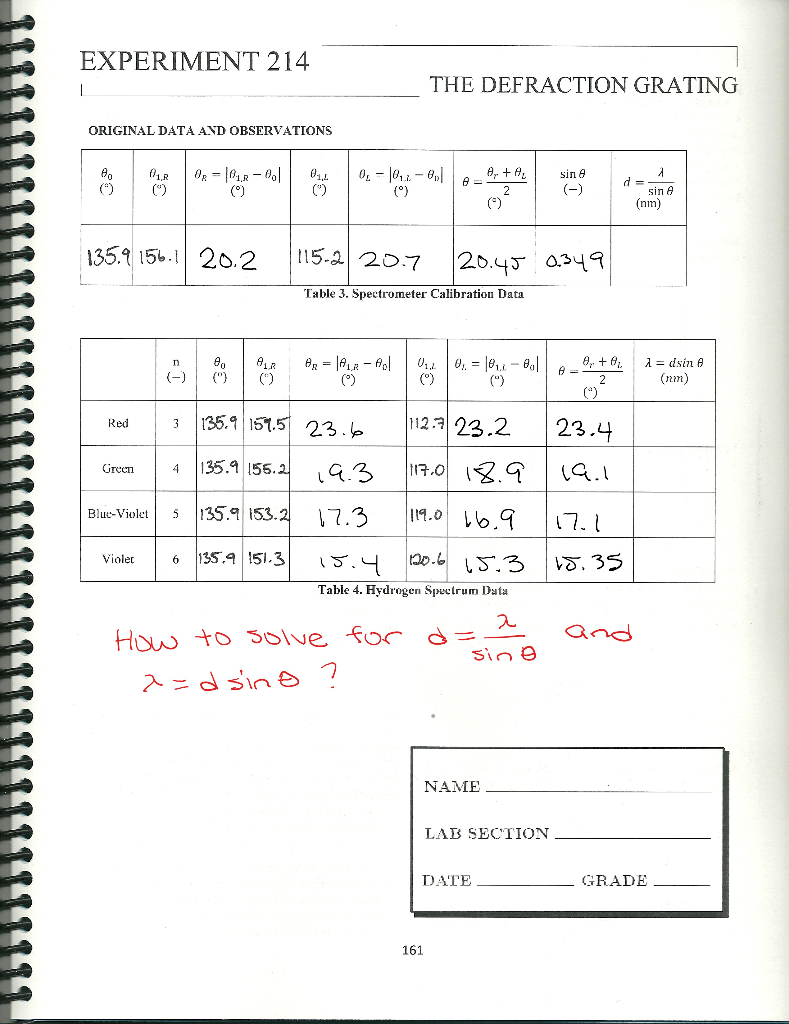 EXPERIMENT 214
THE DEFRACTION GRATING
ORIGINAL DATA AND OBSERVATIONS
θ₀ (°) θ₁,R (°) θR = |θ₁,R − θ₀| (°) θ₁,L (°) θL = |θ₁,L − θ₀| (°) θ = (θr + θL)/2 (°) sin θ (−) d = λ/sin θ (nm)
135.9 156.1 20.2 115.2 20.7 20.45 0.349
Table 3. Spectrometer Calibration Data
n (−) θ₀ (°) θ₁,R (°) θR = |θ₁,R − θ₀| (°) θ₁,L (°) θL = |θ₁,L − θ₀| (°) θ = (θr + θL)/2 (°) λ = dsin θ (nm)
Red 3 135.9 159.5 23.6 112.7 23.2 23.4
Green 4 135.9 155.2 19.3 117.0 18.9 19.1
Blue-Violet 5 135.9 153.2 17.3 119.0 16.9 17.1
Violet 6 135.9 151.3 15.4 120.6 15.3 15.35
Table 4. Hydrogen Spectrum Data
How to solve for d = λ/sin θ and
λ = d sin θ ?
NAME
LAB SECTION
DATE GRADE
161